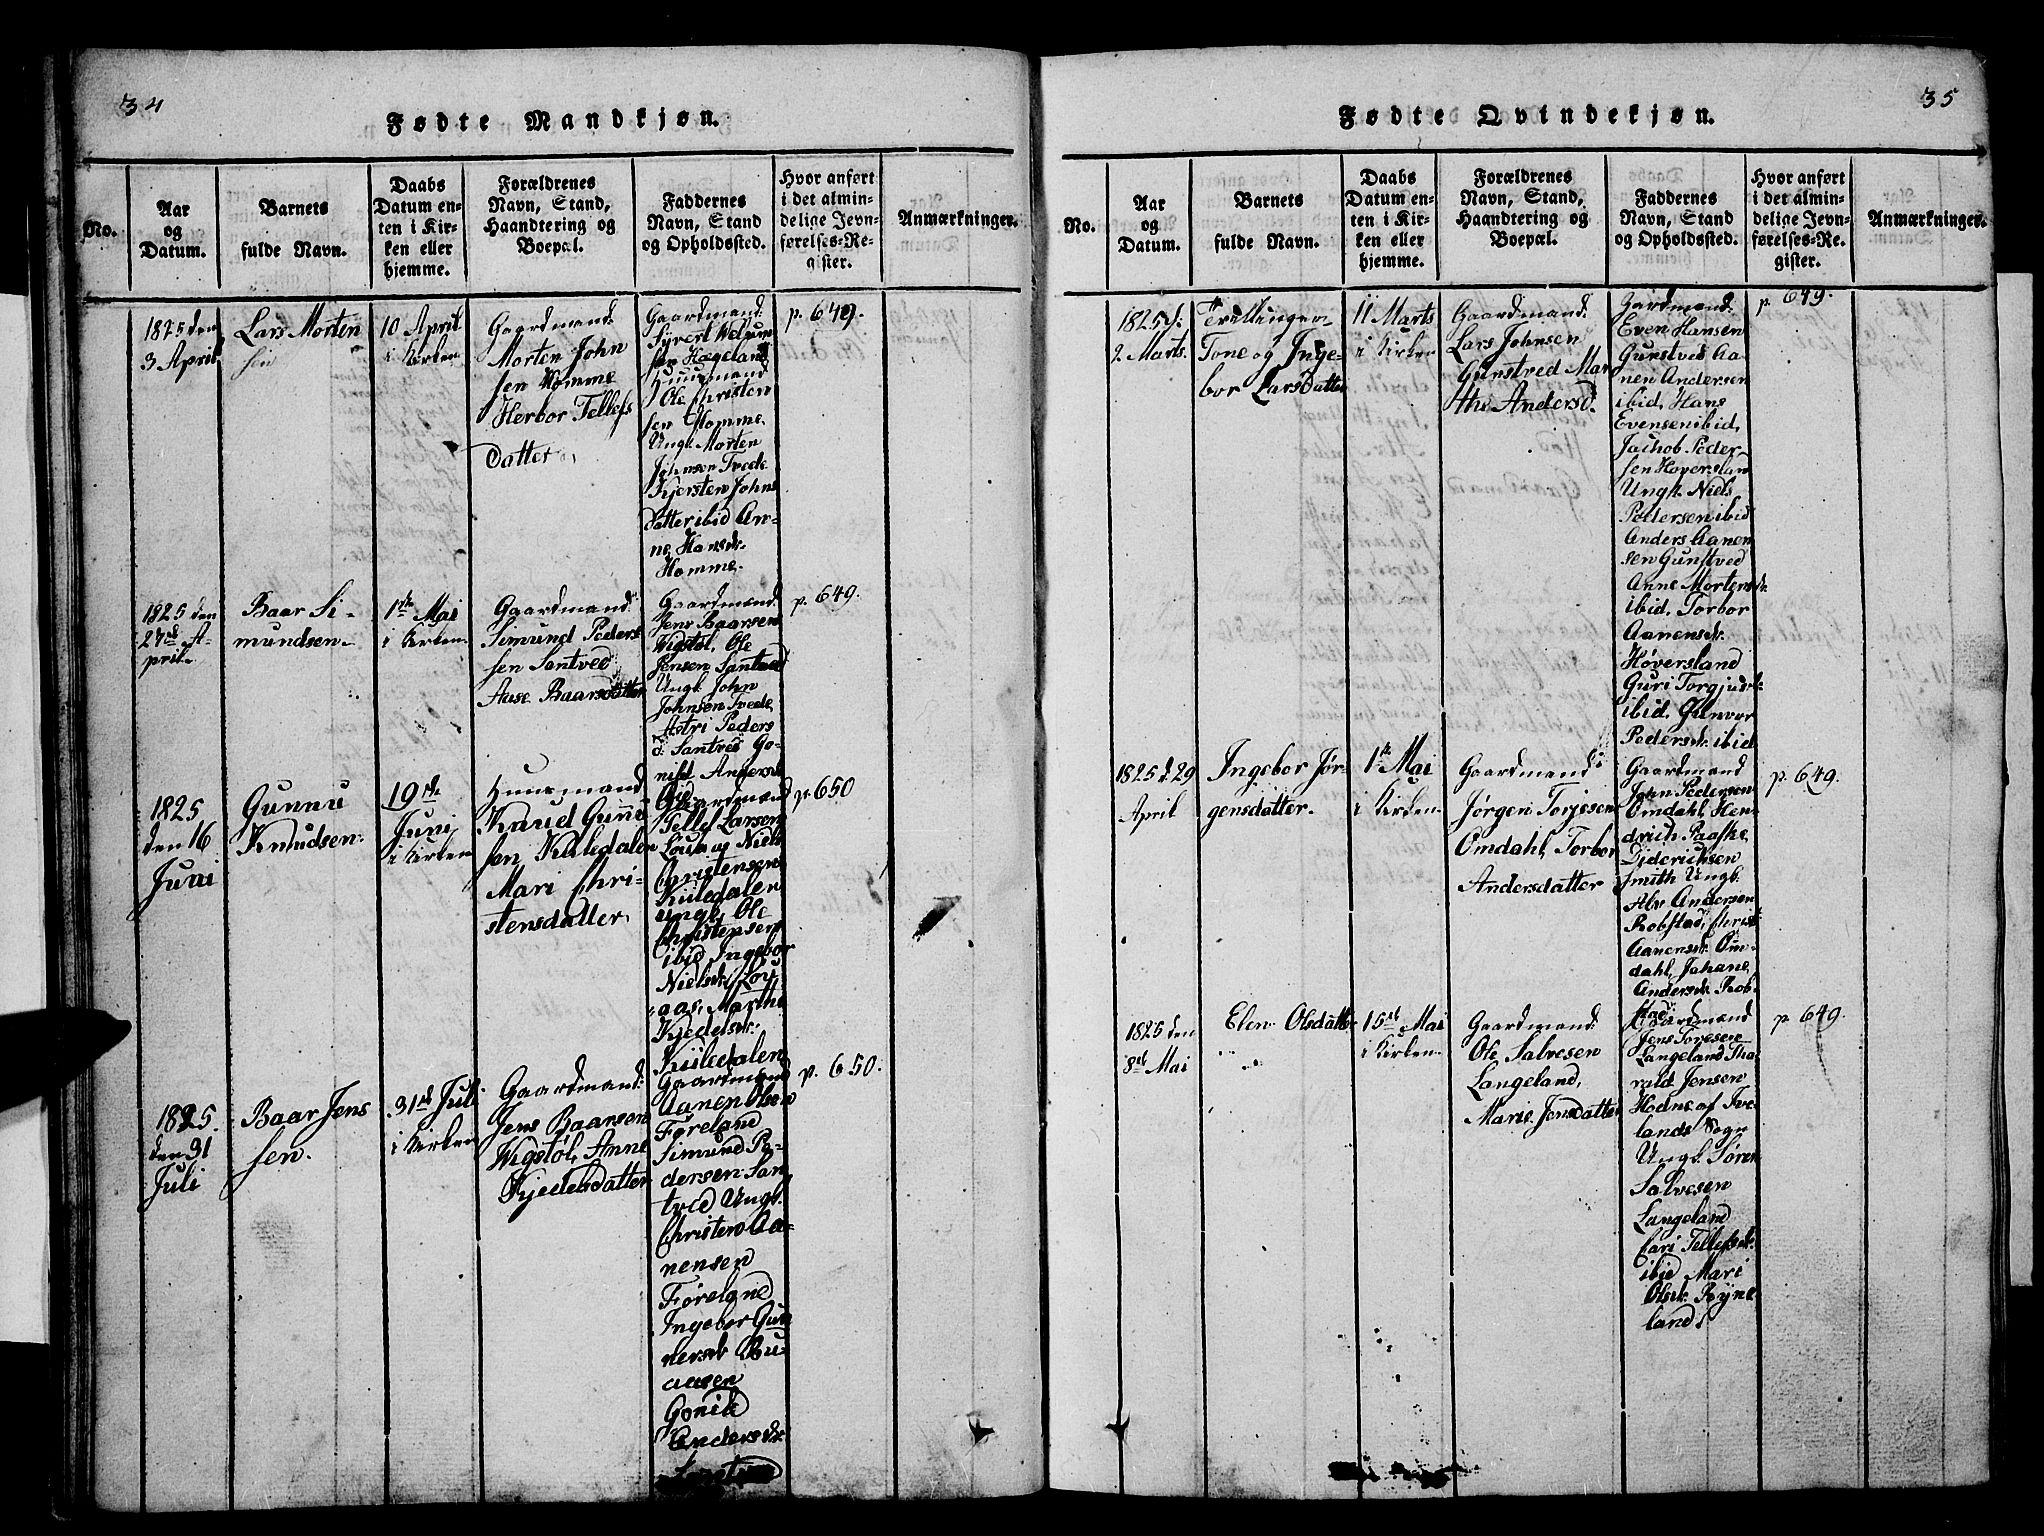 34
Fødte Mandkjøn.
No.
Aar
og
Datum.
Barnets
fulde Navn.
Daabs
Datum en-
ten i Kir-
ken eller
hjemme.
Forældrenes
Navn, Stand,
Haandtering og
Boepæl.
Faddernes
Navn, Stand
og Opholdssted.
Hvor anført
i det almin-
delige Jevn-
førelses-Re-
gister.
Anmærkninger.
1825 den
3 April
Lars Morten
sen
10 April
i Kirken
Gaardmand
Morten John
sen Homme
Herbor Tellefs
Datter
Gaardmand
Syvert
sen Hægeland
Huusmand
Ole Christen
sen Homme
Ungk. Morten
Johnsen Tvede
Kjersten Johns
datter ibid An-
ne Hansdr.
Homme.
p. 649.
1825 den
27de A-
pril
Baar Si-
mundsen
1ste Mai
i Kirken
Gaardmand
Simund Peder
sen Santved
Aase Baarsdatter
Gaardmand
Jens Baarsen
Wigstøl, Ole
Jensen Santved
Ungk. John
Johnsen Tvede,
Astri Peders
d. Santved Go-
nild Andersd
p. 649.
1825
den 16
Juni
Gunnu
Knudsen
19de
Juni
i Kirken
Huusmand
Knud Gunnu
sen Kiiledalen
Mari Chri-
stensdatter
Gaardmand
Tellef Larsen
og Niels
Christensen
Kiiledalen
Ungk. Ole
Christensen
ibid Ingebor
Nielsdr.
aas, Marthe
Kjedelsdr.
Kiiledalen
p. 650
1825.
den 31
Juli
Baar Jens
sen.
31te Juli
i Kirken
Gaardmand
Jens Baarsen
Wigstøl, Anne
Kjedelsdatter
Gaardmand
Aanen Olsen
Føreland
Simund Pe-
dersen San
tved Ungk.
Christen Aa-
nensen
Føreland
Ingebor Gun
nersdr
aasen
Gonild
Andersdr.
p. 650.
35
Fødte Qvindekjøn.
No.
Aar
og
Datum.
Barnets
fulde Navn.
Daabs
Datum en-
ten i Kir-
ken eller
hjemme.
Forældrenes
Navn, Stand,
Haandtering og
Boepæl.
Faddernes
Navn, Stand
og Opholdssted.
Hvor anført
i det almin-
delige Jevn-
førelses-Re-
gister.
Anmærkninger.
1825 d.
2 Marts.
Tvillinger
Tone og Inge-
bor Larsdatter
11 Marts
i Kirken
Gaardmand
Lars Johnsen
Gunstved Mar
the Andersd.
Gardmand
Even Hansen
Gunstved Aa-
nen Andersen
ibid, Hans
Evensen ibid,
Jachob Peder-
sen Høversland
Ungk. Niels
Pedersen ibid
Anders Aanen
sen Gunstved
Anne Mortensdr.
ibid, Torbor
Aanensdr.
Høversland
Guri Torgjusdr.
ibid, Gunvor
Pedersdr. ibid
p. 649.
1825 d. 29
April
Ingebor Jør-
gensdatter.
1ste Mai
i Kirken
Gaardmand
Jørgen Torjesen
Omdahl, Torbor
Andersdatter
Gaardmand
John Pedersen
Omdahl, Hen-
drich Paaske
Diderichsen
Smith Ungk.
Alv Andersen
Robstad, Christ
Aanensdr. Om-
dahl, Johane
Andersdr. Rob-
stad
p. 649.
1825 den
8de Mai
Elen Olsdatter
15de Mai
i Kirken
Gaardmand
Ole Salvesen
Langeland,
Marie Jensdatter
Gaardmand
Jens Toresen
Langeland Tha-
rald Jensen
Hodne af Ive-
lands Sogn
Ungk. Søren
Salvesen
Langeland
Cari Tellefsdr.
ibid Mari
Olsdr. Røyne-
land.
p. 649.